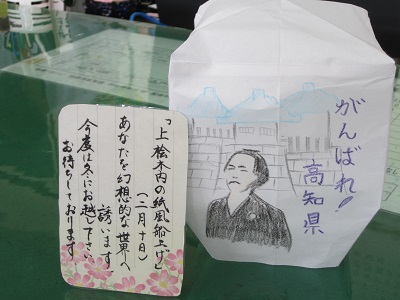 がんばれ!
高知県
「上桧木内の紙風船上げ」
(二月十日)
あなたを幻想的な世界へ
誘います
今度は冬にお越し下さい
お待ちしております